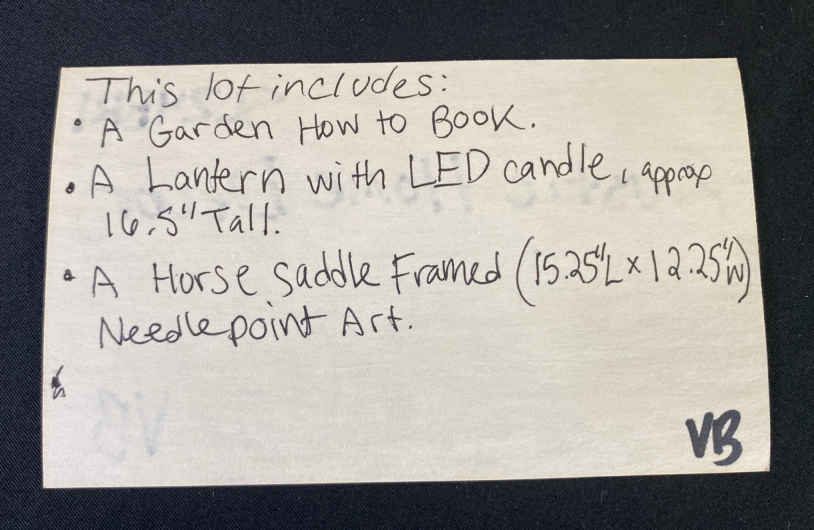 This lot includes:
• A Garden How to Book.
• A Lantern with LED candle, approx
16.5" Tall.
• A Horse Saddle Framed (15.25"L x 12.25"W)
Needlepoint Art.
VB